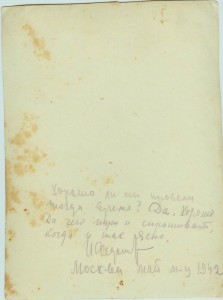 Хорошо ли мы провели
тогда время? Да, хорошо
Да чего тут и спрашивать,
когда и так ясно.
Москва май м-ц 1942